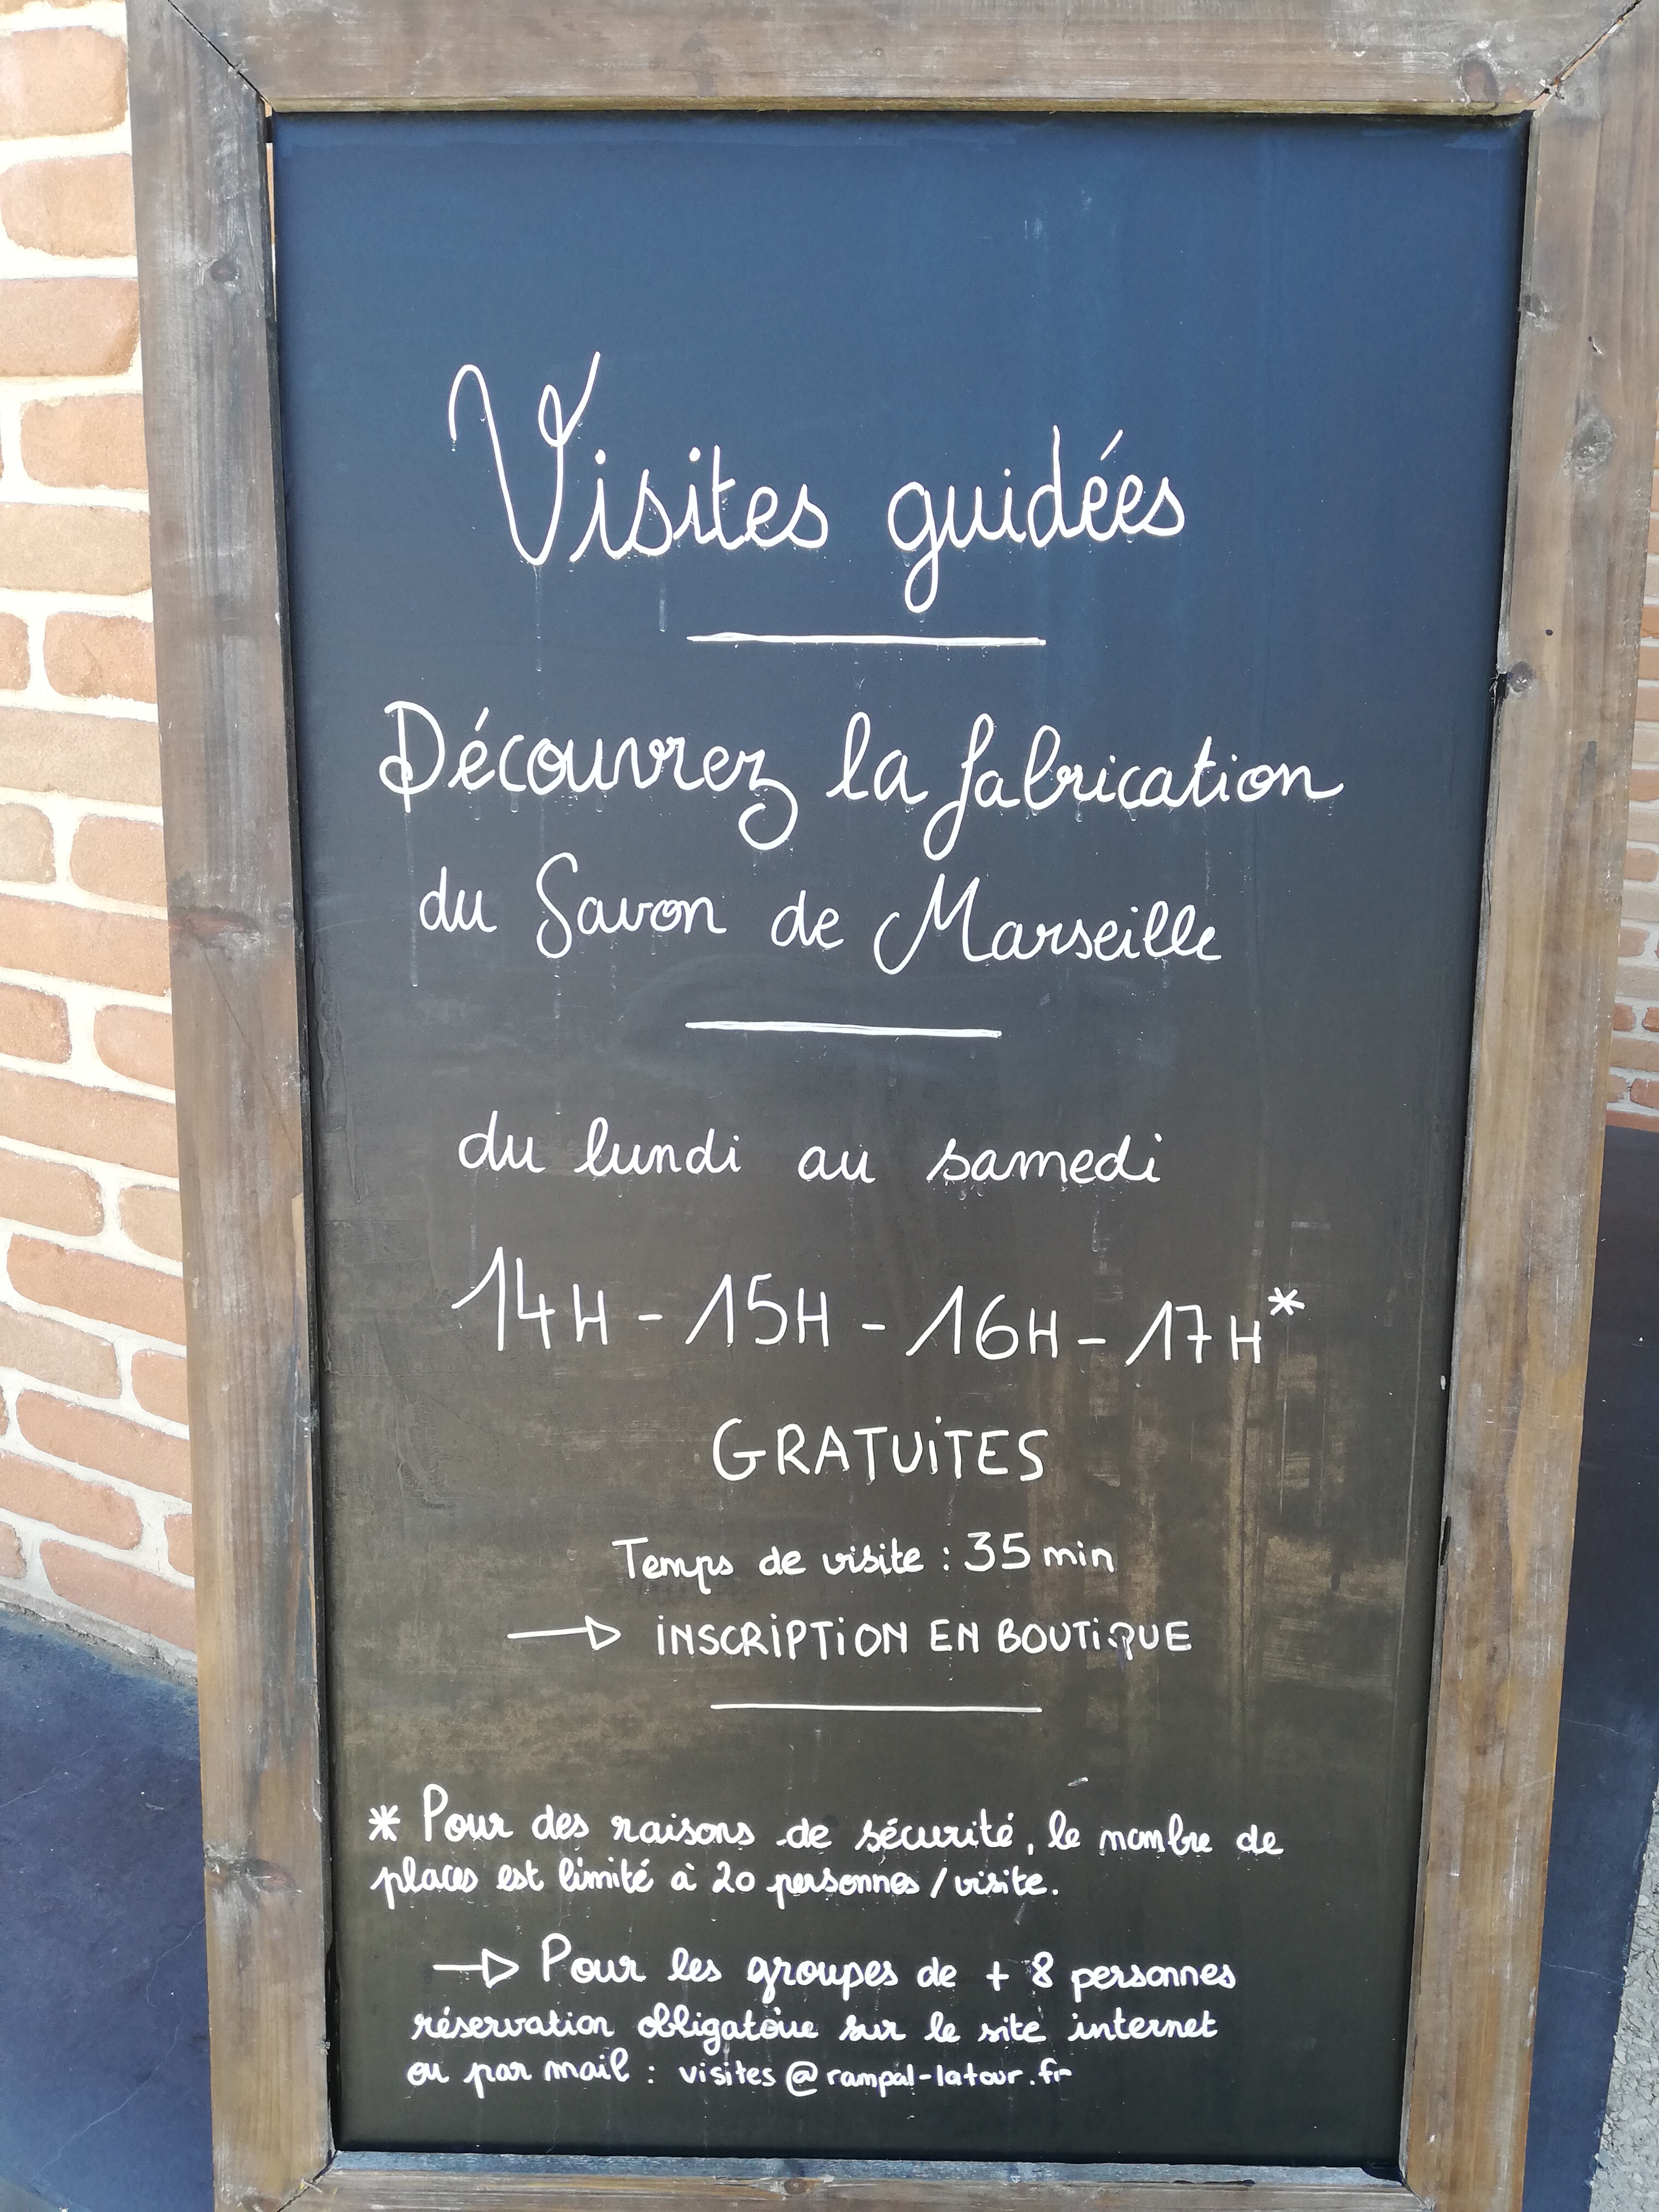 Visites guidées
Découvrez la fabrication
du Savon de Marseille
du lundi au samedi
14H - 15H - 16H - 17H*
GRATUITES
Temps de visite : 35 min
→ INSCRIPTION EN BOUTIQUE
* Pour des raisons de sécurité, le nombre de
places est limité à 20 personnes / visite.
→ Pour les groupes de + 8 personnes
réservation obligatoire sur le site internet
ou par mail : visites@rampal-latour.fr